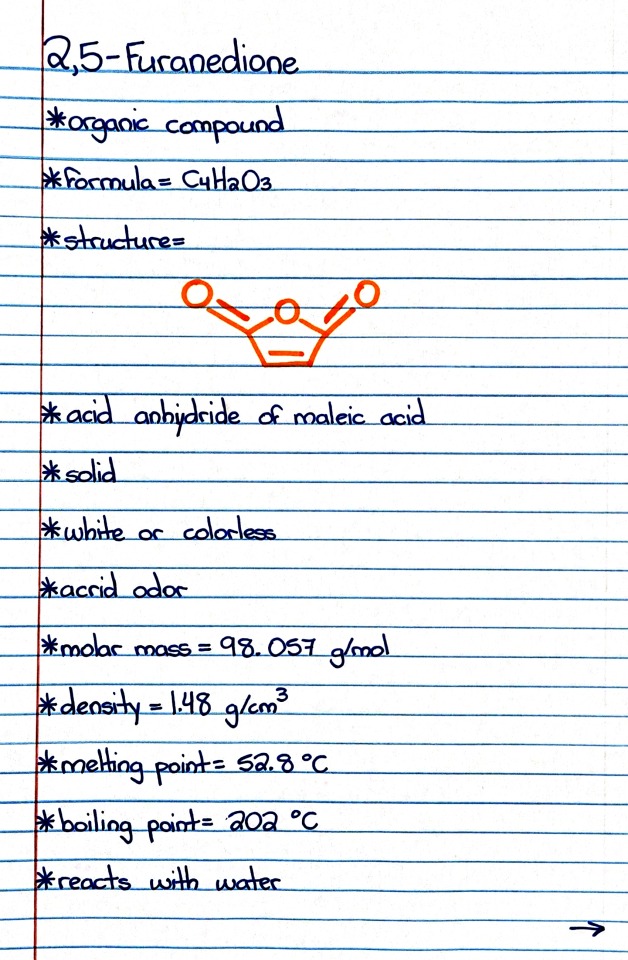 2,5-Furanedione
*organic compound
*formula= C4H2O3
*structure=
O O O
*acid anhydride of maleic acid
*solid
*white or colorless
*acrid odor
*molar mass = 98.057 g/mol
*density = 1.48 g/cm³
*melting point= 52.8 °C
*boiling point= 202 °C
*reacts with water
→